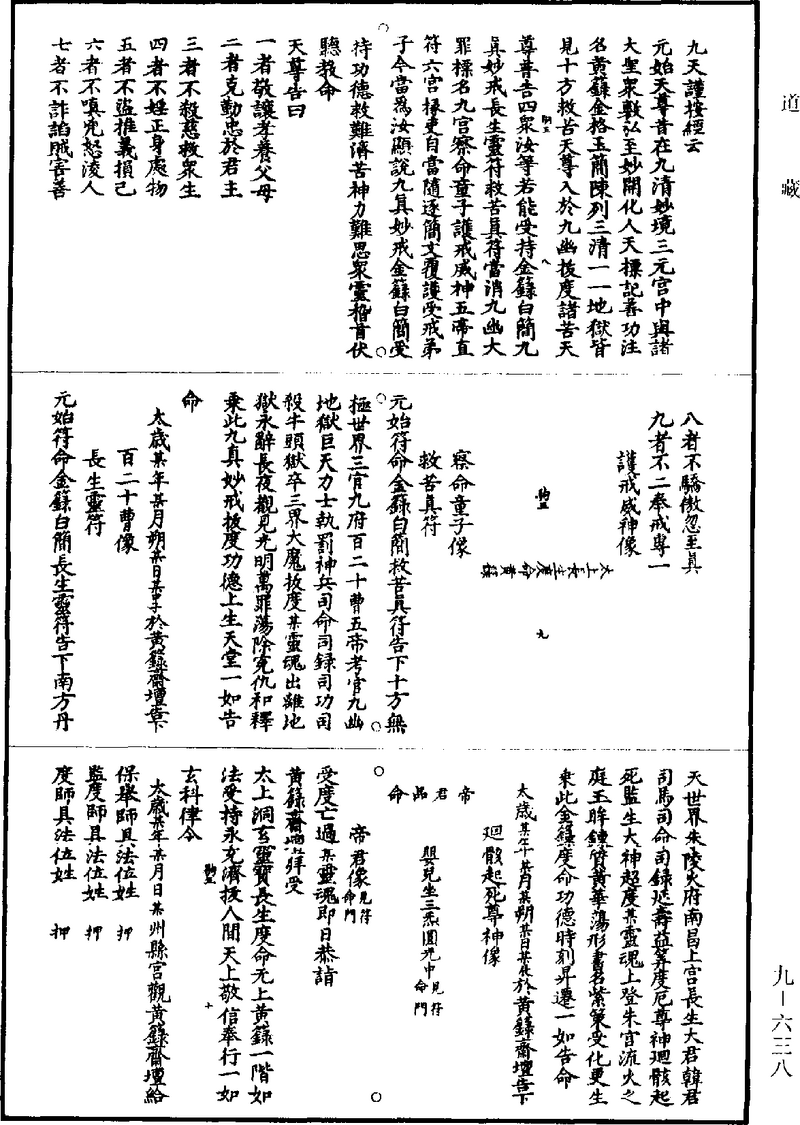 道藏
九天謹按經云
元始天尊昔在九清妙境三元宫中與諸
大聖衆敷弘至妙開化人天標記善功注
名黃籙金格玉簡陳列三清一一地獄皆
見十方救苦天尊入於九幽拔度諸苦天
尊普告四衆汝等若能受持金籙白簡九
真妙戒長生靈符救苦真符當消九幽大
罪標名九宫察命童子護戒威神五帝直
符六宫掾吏自當隨逐簡文覆護受戒弟
子今當為汝顯說九真妙戒金籙白簡受
持功德救難濟苦神力難思衆靈稽首伏
聽教命
天尊告曰
一者敬讓孝養父母
二者克勤忠於君主
三者不殺慈救衆生
四者不婬正身處物
五者不盜推義損己
六者不嗔兇怒淩人
七者不詐諂賊害善
八者不驕傲忽至真
九者不二奉戒專一
護戒威神像
太上長生度命黃籙
九
察命童子像
救苦真符
元始符命金籙白簡救苦真符告下十方無
極世界三官九府百二十曹五帝考官九幽
地獄巨天力士執罰神兵司命司錄司功司
殺牛頭獄卒三界大魔拔度某靈魂出離地
獄永辭長夜觀見光明萬罪蕩除冤仇和釋
乘此九真妙戒拔度功德上生天堂一如告
命
太歲某年某月朔某日某子於黃籙齋壇告下
百二十曹像
長生靈符
元始符命金籙白簡長生靈符告下南方丹
天世界朱陵火府南昌上宫長生大君韓君
司馬司命司錄延壽益筭度厄尊神廻骸起
死監生大神超度某靈魂上登朱宫流火之
庭王眸鍾質黃華蕩形書名紫策受化更生
乘此金籙度命功德時刻昇遷一如告命
太歲某年某月某朔某日某姓於黃籙齋壇告下
廻骸起死尊神像
帝君品命
嬰兒坐三炁圓光中見符命門
帝君像見符命門
受度亡過某靈魂即日恭詣
黃籙齋壇拜受
太上洞玄靈寶長生度命无上黃籙一階如
法受持永充濟拔人間天上敬信奉行一如
玄科律令
太歲某年某月日某州縣宫觀黃籙齋壇給
保舉師具法位姓　押
監度師具法位姓　押
度師具法位姓　押
九－六三八